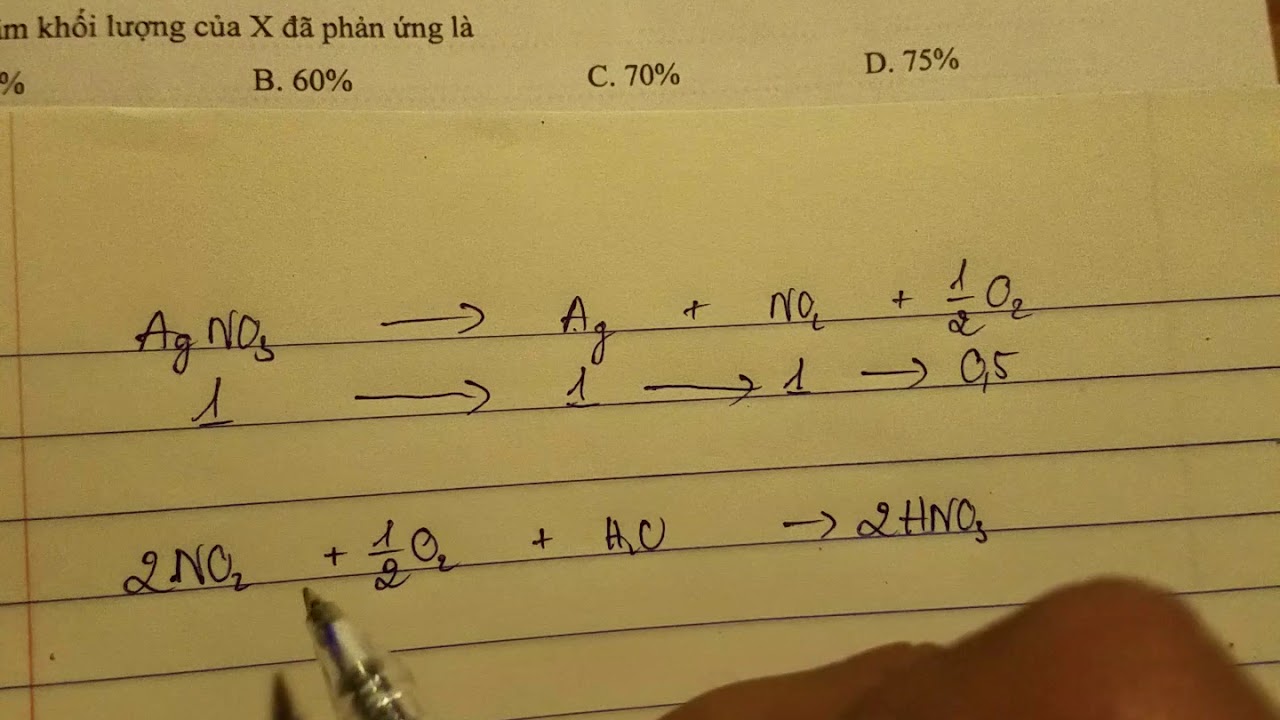 khối lượng của X đã phản ứng là
% B. 60% C. 70% D. 75%
AgNO₃ → Ag + NO₂ + 1/2 O₂
1 → 1 → 1 → 0,5
2NO₂ + 1/2 O₂ + H₂O → 2HNO₃